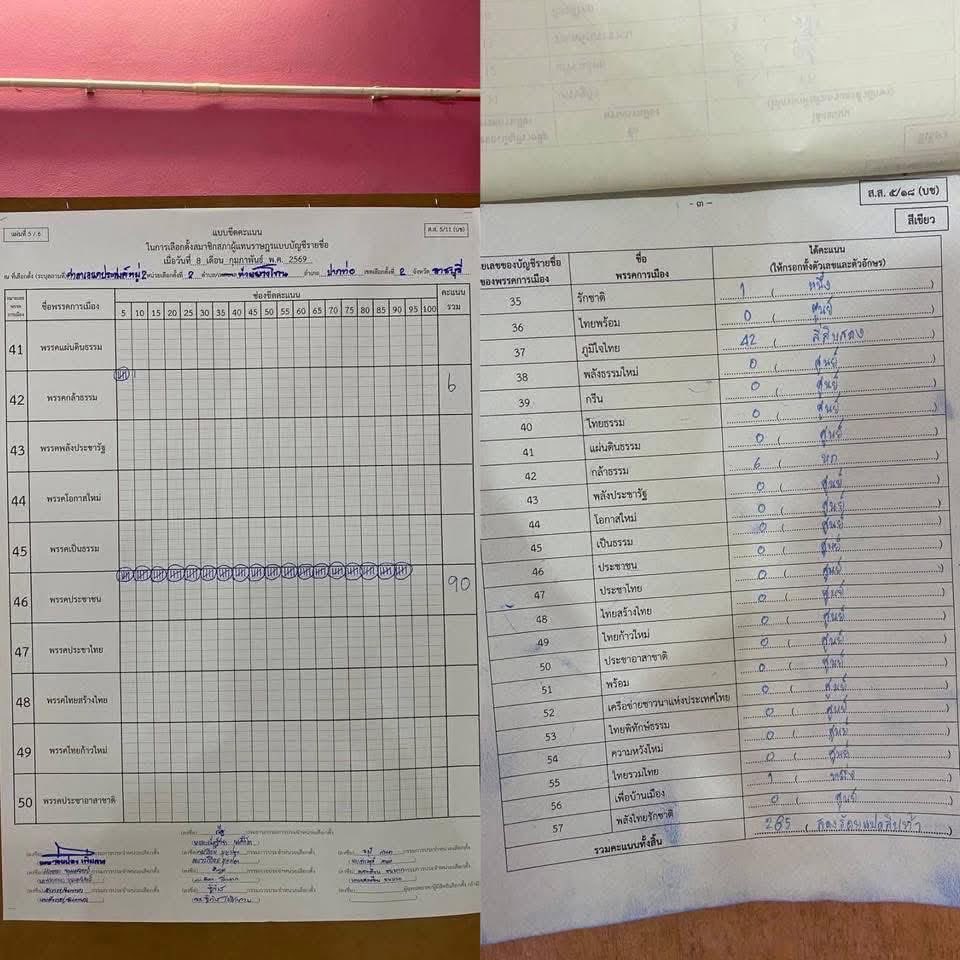 แผ่นที่ 5 / 6
แบบขีดคะแนน
ส.ส. 5/11 (บช)
ในการเลือกตั้งสมาชิกสภาผู้แทนราษฎรแบบบัญชีรายชื่อ
เมื่อวันที่ 8 เดือน กุมภาพันธ์ พ.ศ. 2569
ณ ที่เลือกตั้ง (ระบุสถานที่) หน่วยเลือกตั้งที่ 2 อำเภอ ปากท่อ เขตเลือกตั้งที่ 2 จังหวัด ราชบุรี
หมายเลขพรรคการเมือง ชื่อพรรคการเมือง ช่องขีดคะแนน คะแนนรวม
5 10 15 20 25 30 35 40 45 50 55 60 65 70 75 80 85 90 95 100
41 พรรคแผ่นดินธรรม
42 พรรคกล้าธรรม 6
43 พรรคพลังประชารัฐ
44 พรรคโอกาสใหม่
45 พรรคเป็นธรรม
46 พรรคประชาชน 90
47 พรรคประชาไทย
48 พรรคไทยสร้างไทย
49 พรรคไทยก้าวใหม่
50 พรรคประชาอาสาชาติ
- ๓ -
ส.ส. ๕/๑๘ (บช)
สีเขียว
ยเลขของบัญชีรายชื่อของพรรคการเมือง
ชื่อพรรคการเมือง
ได้คะแนน
(ให้กรอกทั้งตัวเลขและตัวอักษร)
35 รักชาติ 1 ( หนึ่ง )
36 ไทยพร้อม 0 ( ศูนย์ )
37 ภูมิใจไทย 42 ( สี่สิบสอง )
38 พลังธรรมใหม่ 0 ( ศูนย์ )
39 กรีน 0 ( ศูนย์ )
40 ไทยธรรม 0 ( ศูนย์ )
41 แผ่นดินธรรม 0 ( ศูนย์ )
42 กล้าธรรม 6 ( หก )
43 พลังประชารัฐ 0 ( ศูนย์ )
44 โอกาสใหม่ 0 ( ศูนย์ )
45 เป็นธรรม 0 ( ศูนย์ )
46 ประชาชน 0 ( ศูนย์ )
47 ประชาไทย 0 ( ศูนย์ )
48 ไทยสร้างไทย 0 ( ศูนย์ )
49 ไทยก้าวใหม่ 0 ( ศูนย์ )
50 ประชาอาสาชาติ 0 ( ศูนย์ )
51 พร้อม 0 ( ศูนย์ )
52 เครือข่ายชาวนาแห่งประเทศไทย 0 ( ศูนย์ )
53 ไทยพิทักษ์ธรรม 0 ( ศูนย์ )
54 ความหวังใหม่ 0 ( ศูนย์ )
55 ไทยรวมไทย 1 ( หนึ่ง )
56 เพื่อบ้านเมือง 0 ( ศูนย์ )
57 พลังไทยรักชาติ
รวมคะแนนทั้งสิ้น 285 ( สองร้อยแปดสิบห้า )